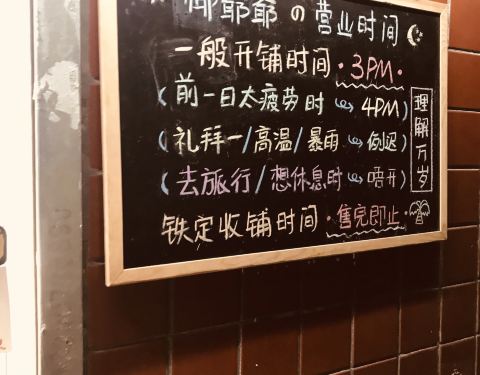 椰爷爷の营业时间
一般开铺时间·3PM·
(前一日太疲劳时→4PM)
(礼拜一/高温/暴雨→例迟)
(去旅行/想休息时→唔开)
理解万岁
铁定收铺时间·售完即止·